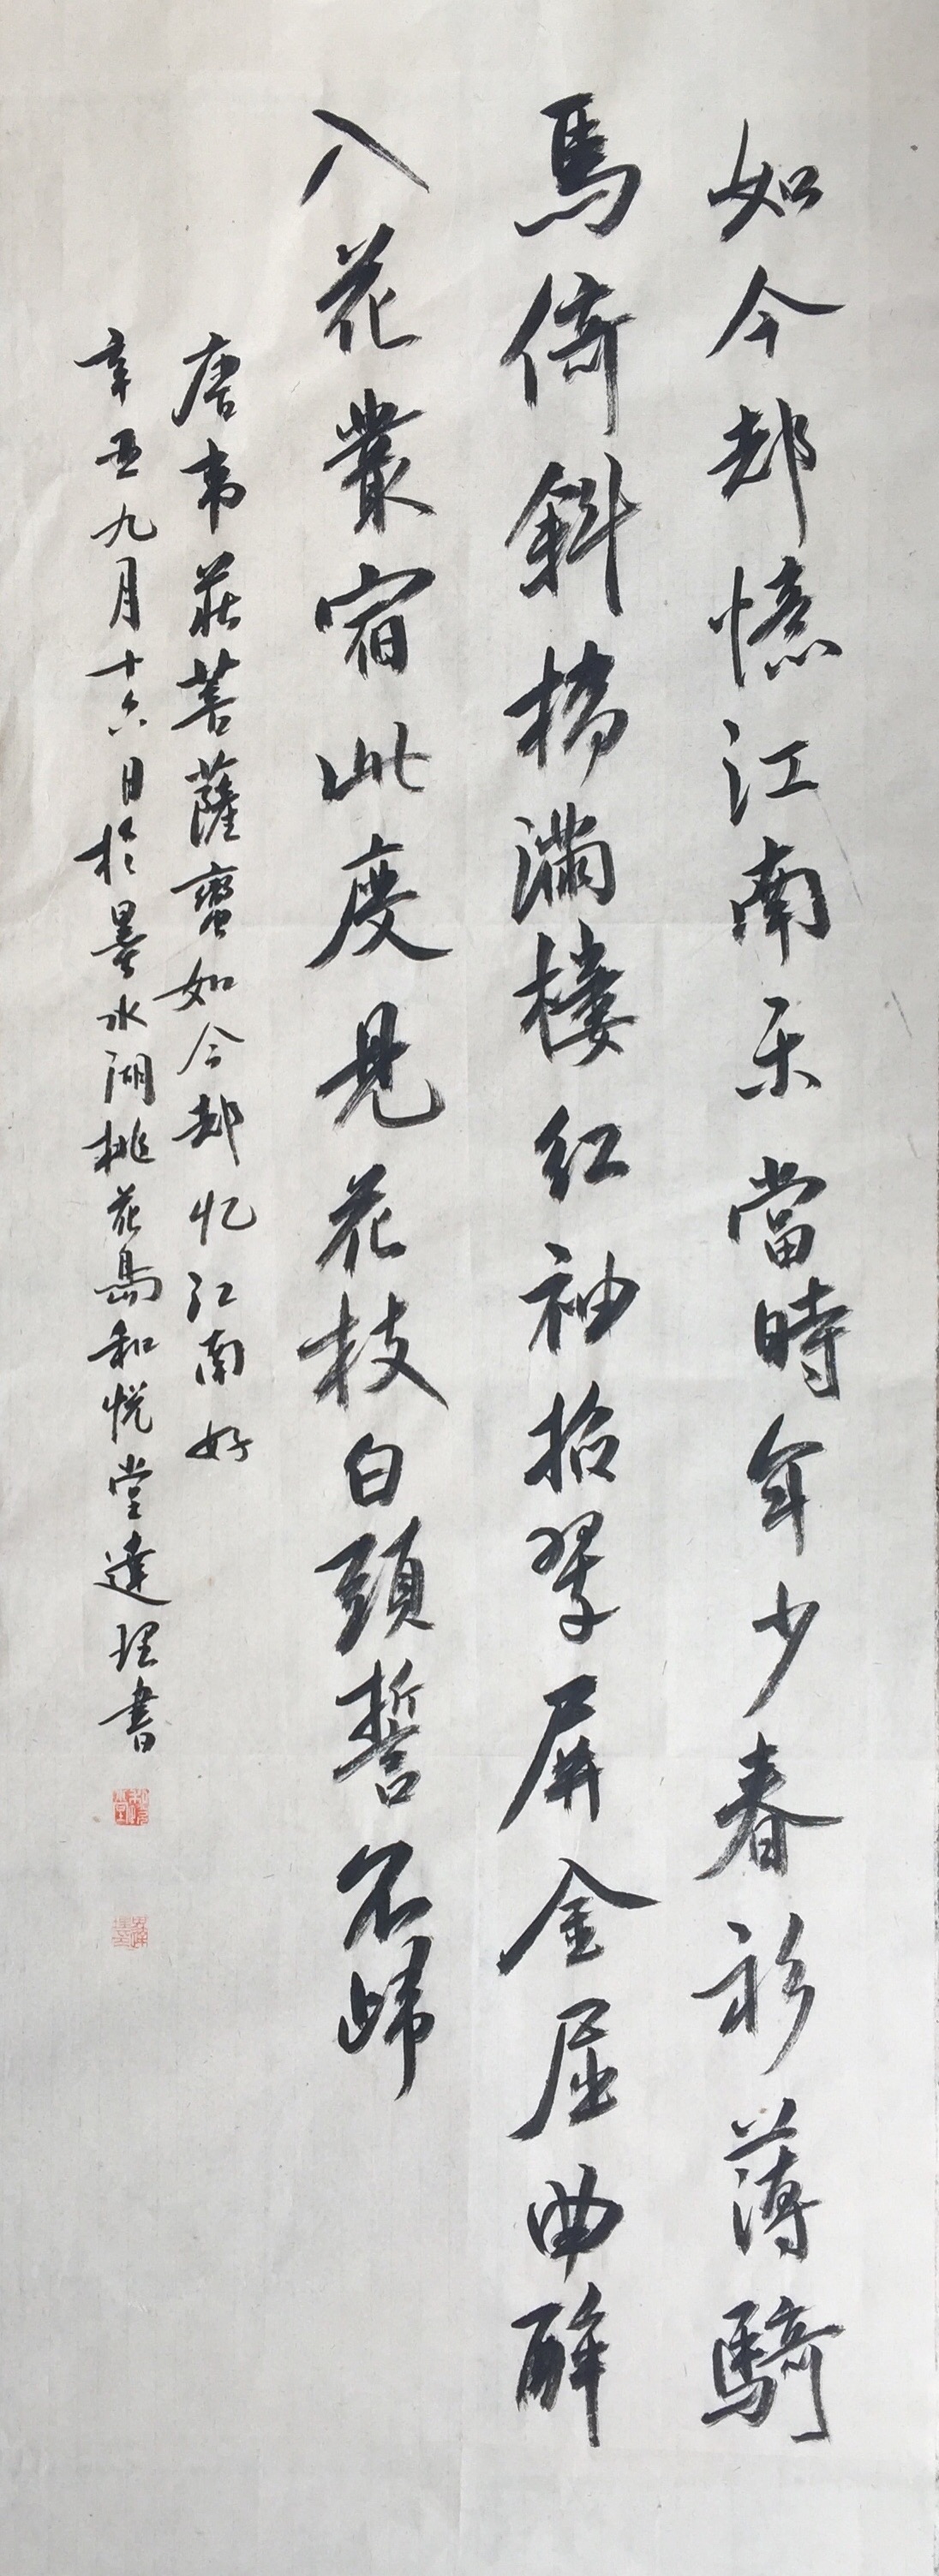 如今却憶江南乐當時年少春衫薄騎
馬倚斜橋滿樓红袖招翠屏金屈曲醉
入花叢宿此度見花枝白頭誓不歸
唐韦莊菩薩蠻如今却忆江南好
辛丑九月十六日於墨水湖桃花島和悦堂達理書